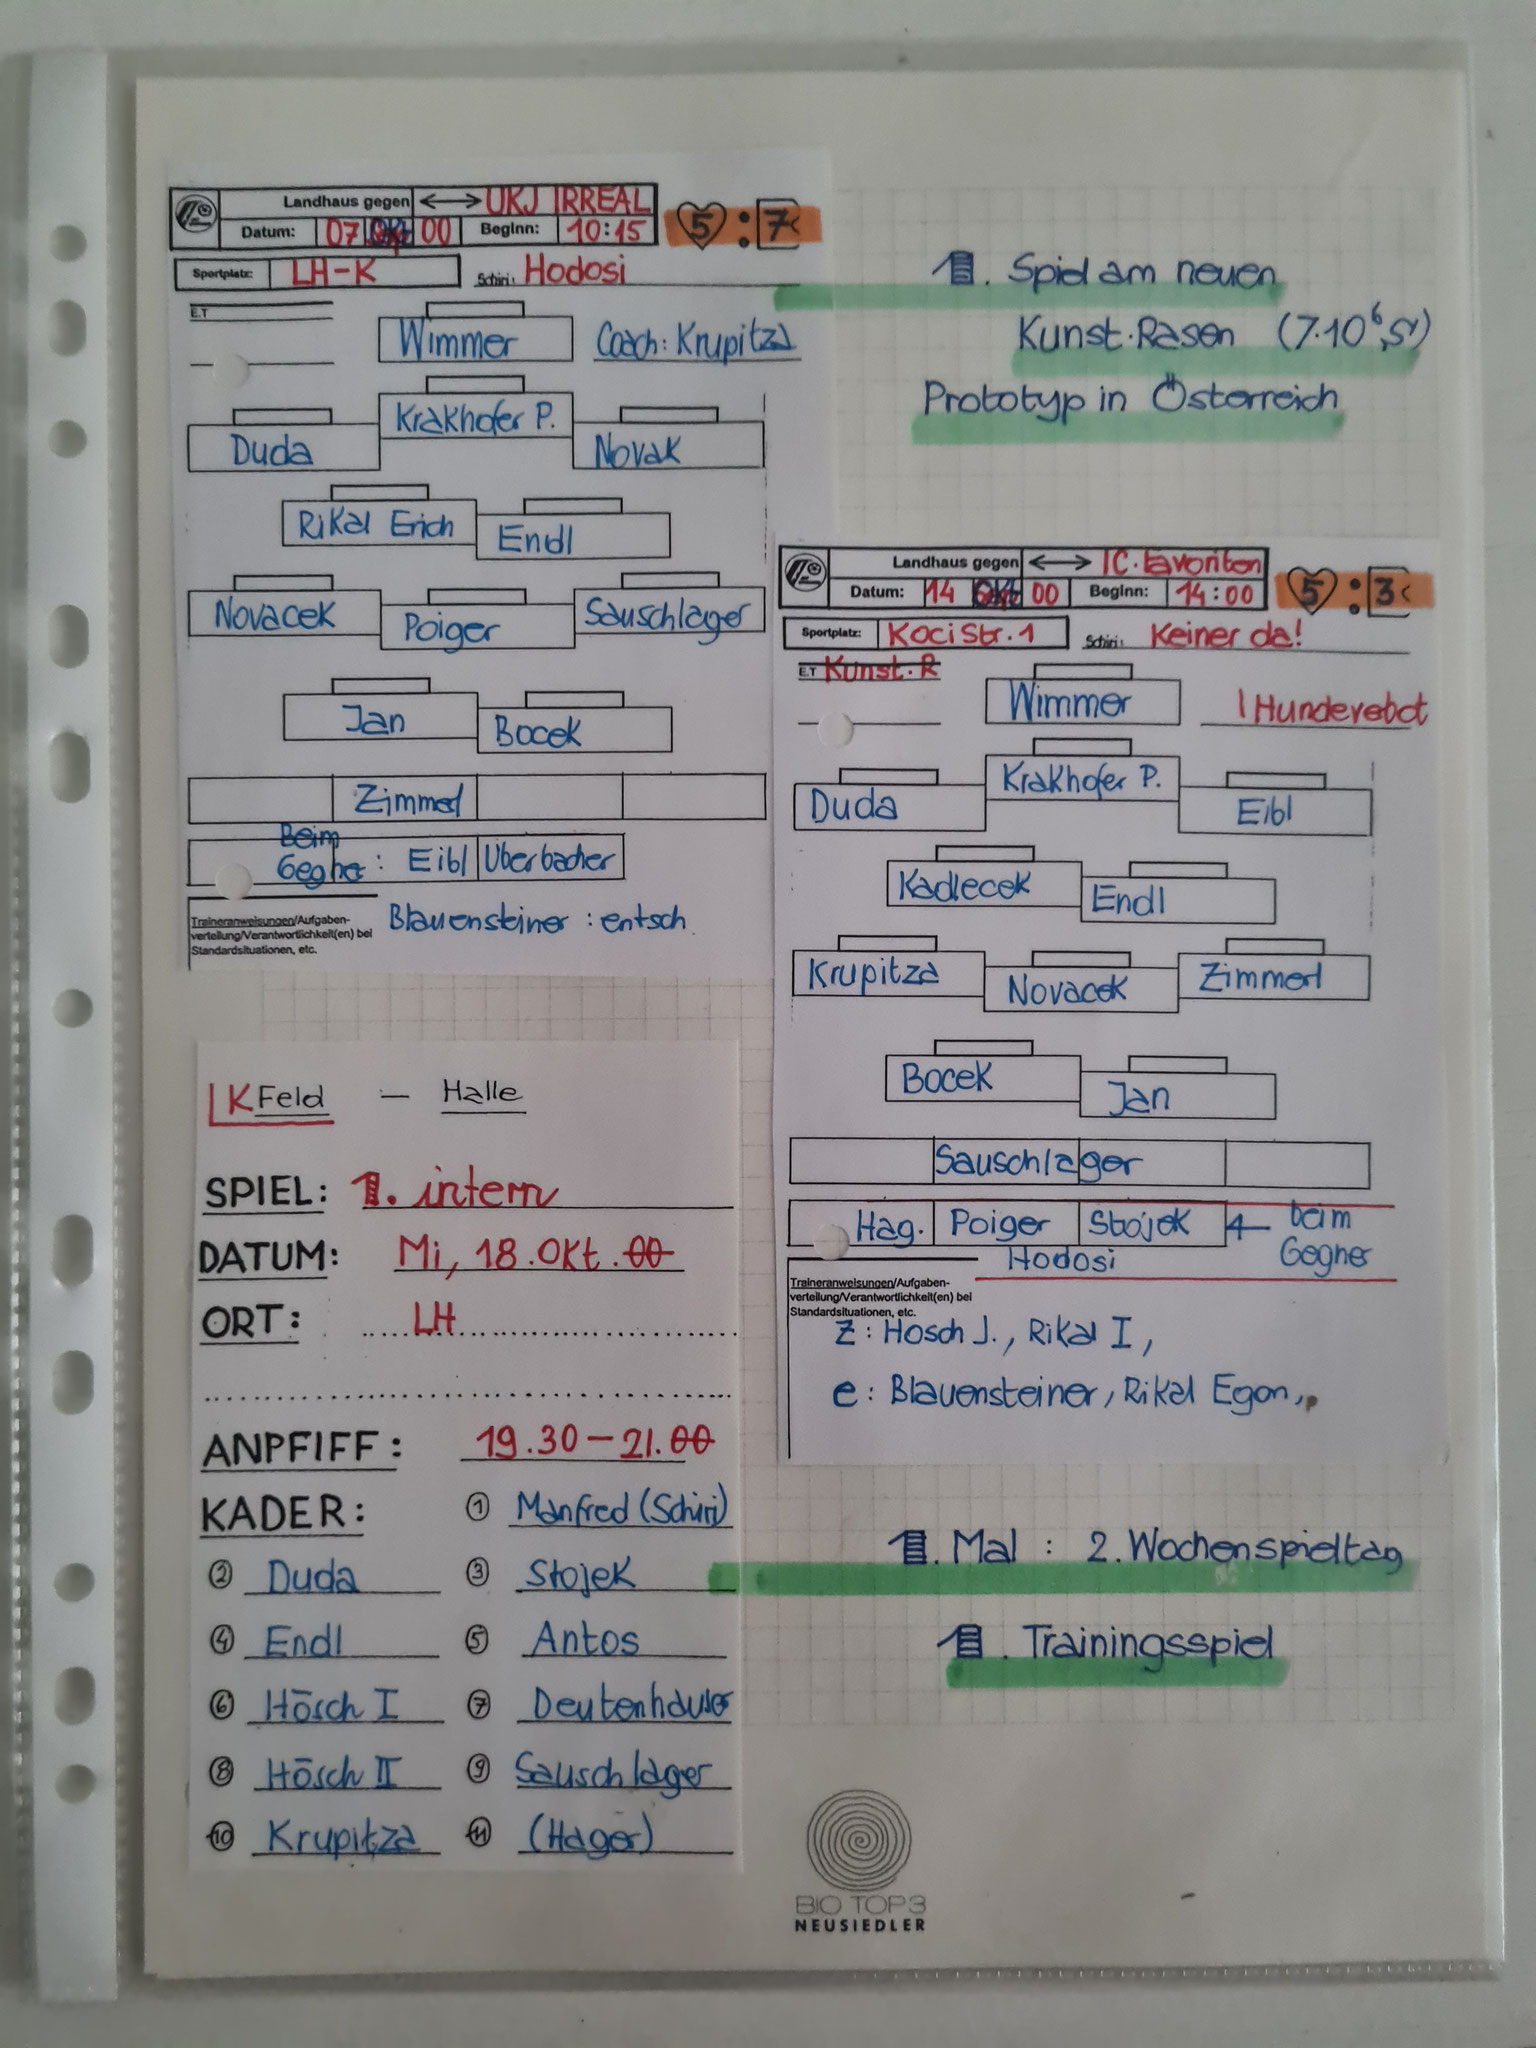 Landhaus gegen ↔ UKJ IRREAL
Datum: 07 Okt 00 Beginn: 10:15
5 : 7
Sportplatz: LH-K Schiri: Hodosi
E.T
Wimmer Coach: Krupitza
Krakhofer P.
Duda Novak
Rikal Erich Endl
Novacek Poiger Sauschlager
Jan Bocek
Zimmerl
Beim
Gegner: Eibl Uberbacher
Traineranweisungen/Aufgaben-
verteilung/Verantwortlichkeit(en) bei
Standardsituationen, etc.
Blauensteiner : entsch
1. Spiel am neuen
Kunst·Rasen (7·10⁶,S)
Prototyp in Österreich
Landhaus gegen ↔ IC. Favoriten
Datum: 14 Okt 00 Beginn: 14:00
5 : 3
Sportplatz: KociStr. 1 Schiri: Keiner da!
E.T Kunst. R
Wimmer ! Hundeverbot
Krakhofer P.
Duda Eibl
Kadlecek Endl
Krupitza Novacek Zimmerl
Bocek Jan
Sauschlager
Hag. Poiger Stojek ← beim
Gegner
Hodosi
Traineranweisungen/Aufgaben-
verteilung/Verantwortlichkeit(en) bei
Standardsituationen, etc.
Z : Hösch J., Rikal I,
e : Blauensteiner, Rikal Egon,
LKFeld – Halle
SPIEL: 1. intern
DATUM: Mi, 18.Okt.00
ORT: LH
ANPFIFF: 19.30 – 21.00
KADER: ① Manfred (Schiri)
② Duda ③ Stojek
④ Endl ⑤ Antos
⑥ Hösch I ⑦ Deutenhauser
⑧ Hösch II ⑨ Sauschlager
⑩ Krupitza ⑪ (Hager)
1. Mal : 2. Wochenspieltag
1. Trainingsspiel
BIO TOP3
NEUSIEDLER